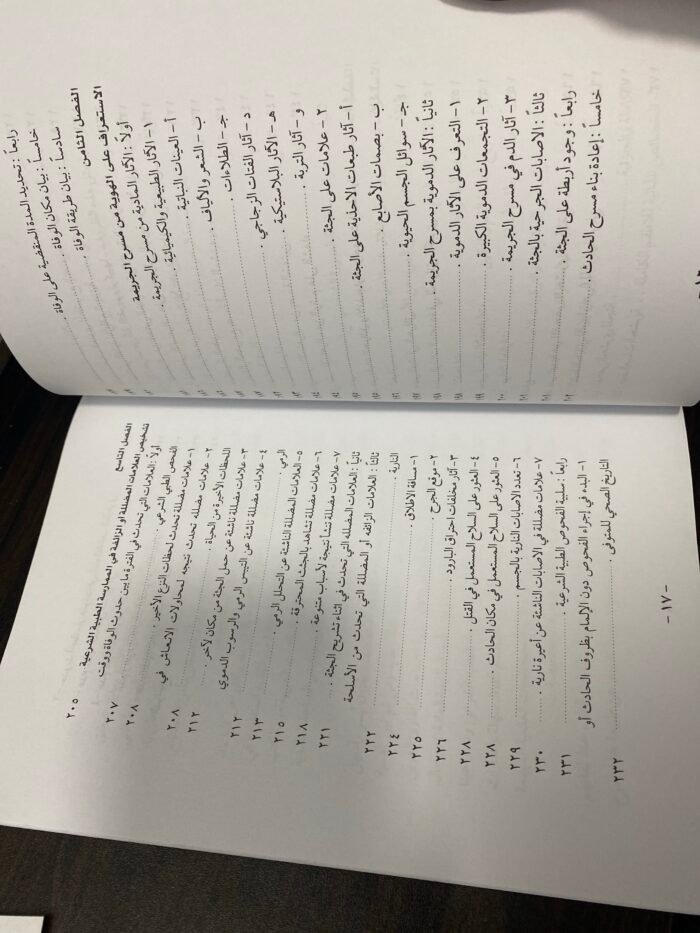 رابعاً : تحديد المدة المنقضية على الوفاة .
خامساً : بيان مكان الوفاة .
سادساً : بيان طريقة الوفاة .
الفصل الثامن
الاستعراف على الهوية من مسرح الجريمة
أولاً : الآثار المادية من مسرح الجريمة
١- الآثار الطبيعية والكيميائية .
أ- العينات النباتية .
ب- الشعر والألياف .
جـ- الطلاءات .
د- آثار الفتات الزجاجي .
هـ- الآثار البلاستيكية .
و- آثار التربة .
٢- علامات على الجثة .
أ- آثار طبعات الاحذية على الجثة .
ب- بصمات الأصابع .
جـ- سوائل الجسم الحيوية .
ثانياً : الآثار الدموية بمسرح الجريمة .
١- التعرف على الآثار الدموية .
٢- التجمعات الدموية الكبيرة .
٣- آثار الدم في مسرح الجريمة .
ثالثاً : الاصابات الجرحية بالجثة .
رابعاً : وجود أربطة على الجثة .
خامساً : إعادة بناء مسرح الحادث .
الفصل التاسع
تشخيص العلامات المضللة او الزائفة في الممارسة الطبية الشرعية ٢٠٥
أولاً : العلامات التي تحدث في الفترة ما بين حدوث الوفاة ووقت
الفحص الطبي الشرعي . ٢٠٧
١- علامات مضللة تحدث لحظات النزع الأخير . ٢٠٨
٢- علامات مضللة تحدث نتيجة لمحاولات الانعاش في
اللحظات الأخيرة من الحياة . ٢٠٨
٣- علامات مضللة ناشئة عن حمل الجثة من مكان لآخر . ٢١٢
٤- علامات مضللة ناشئة عن التيبس الرمي والرسوب الدموي
الرمي . ٢١٢
٥- العلامات المضللة الناشئة عن التحلل الرمي . ٢١٣
٦- علامات مضللة تشاهد بالجثث المحترقة . ٢١٥
٧- علامات مضللة تنشأ نتيجة لأسباب متنوعة . ٢١٨
ثانياً : العلامات المضللة التي تحدث في اثناء تشريح الجثة . ٢٢١
ثالثاً : العلامات الزائفة أو المضللة التي تحدث من الأسلحة
النارية . ٢٢٢
١- مسافة الاطلاق . ٢٢٤
٢- موقع الجرح . ٢٢٥
٣- آثار مخلفات احتراق البارود . ٢٢٦
٤- العثور على السلاح المستعمل في القتل . ٢٢٨
٥- العثور على السلاح المستعمل في مكان الحادث . ٢٢٨
٦- تعدد الاصابات النارية بالجسم . ٢٢٩
٧- علامات مضللة في الاصابات الناشئة عن أعيرة نارية . ٢٣٠
رابعاً : سلبية الفحوص الطبية الشرعية . ٢٣١
١- البدء في إجراء الفحوص دون الإلمام بظروف الحادث أو
التاريخ الصحي للمتوفى . ٢٣٢
- ١٧ -